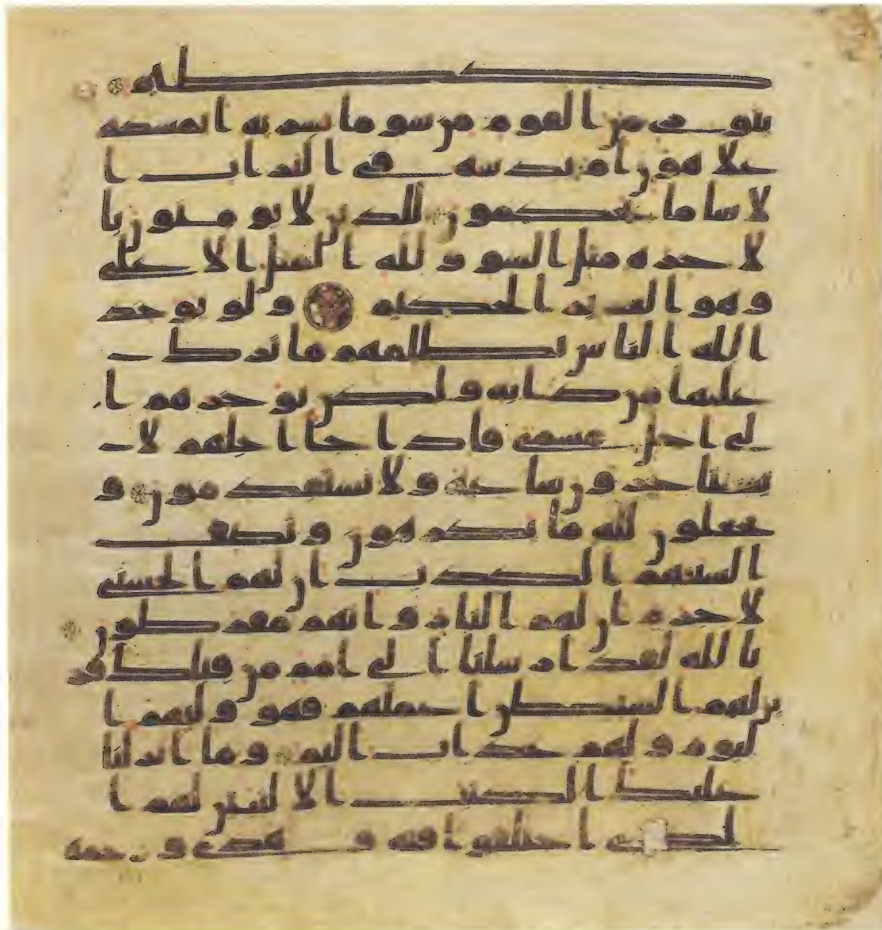 كظيم
يتورى من القوم من سو ما بشر به ايمسكه
علا هون ام يدسه في التراب ا
لا سا ما يحكمون للذين لا يومنون با
لاخرة مثل السو ولله المثل الاعلى
وهو العزيز الحكيم ولو يوخذ
الله الناس بظلمهم ما ترك
عليها من دابة ولكن يوخرهم ا
لى اجل مسمى فاذا جا اجلهم لا
يستاخرون ساعة ولا يستقدمون و
يجعلون لله ما يكرهون وتصف
السنتهم الكذب ان لهم الحسنى
لا جرم ان لهم النار وانهم مفرطون
تالله لقد ارسلنا الى امم من قبلك فز
ين لهم الشيطن اعملهم فهو وليهم ا
ليوم ولهم عذاب اليم وما انزلنا
عليك الكتب الا لتبين لهم ا
لذي اختلفوا فيه وهدى ورحمة